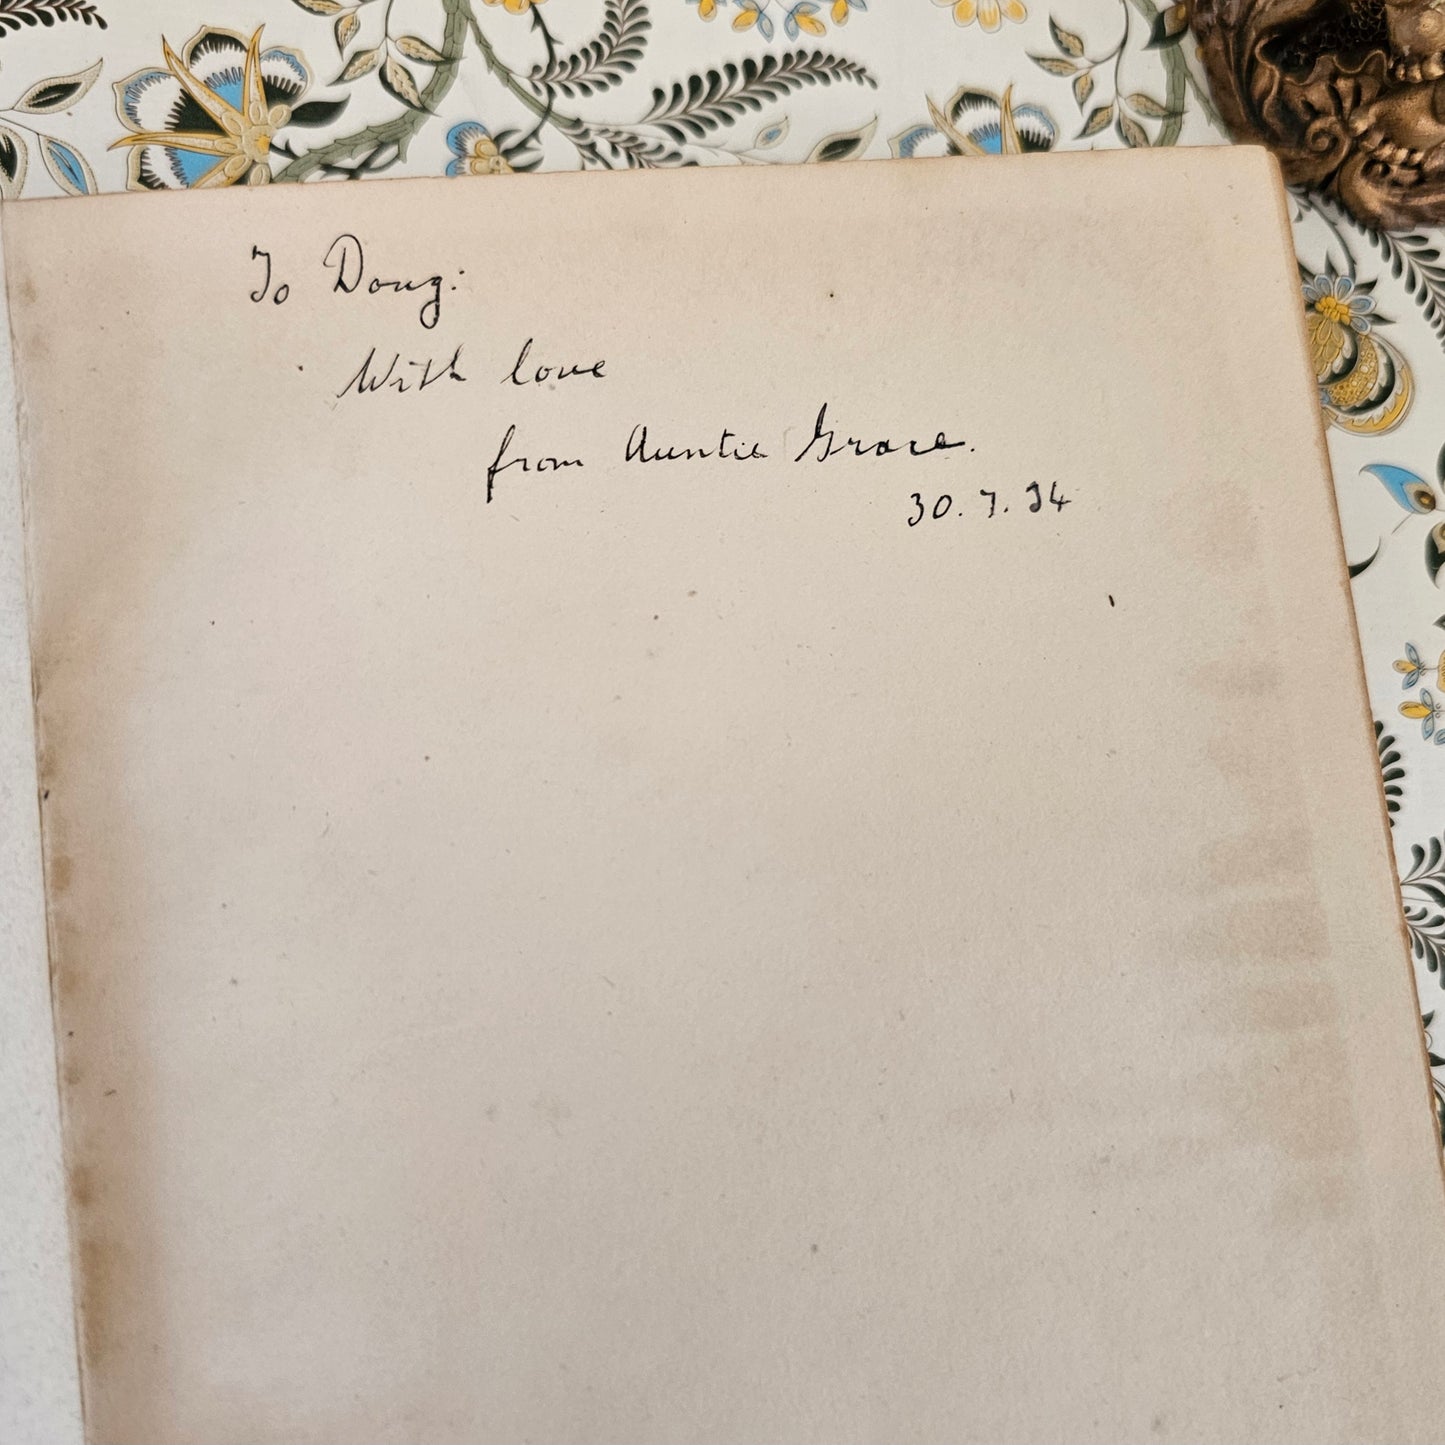 To Doug:
With love
from Auntie Grace.
30.7.34